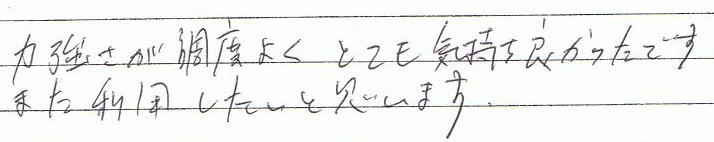 力強さが調度よく とても気持ち良かったです
また利用したいと思います.